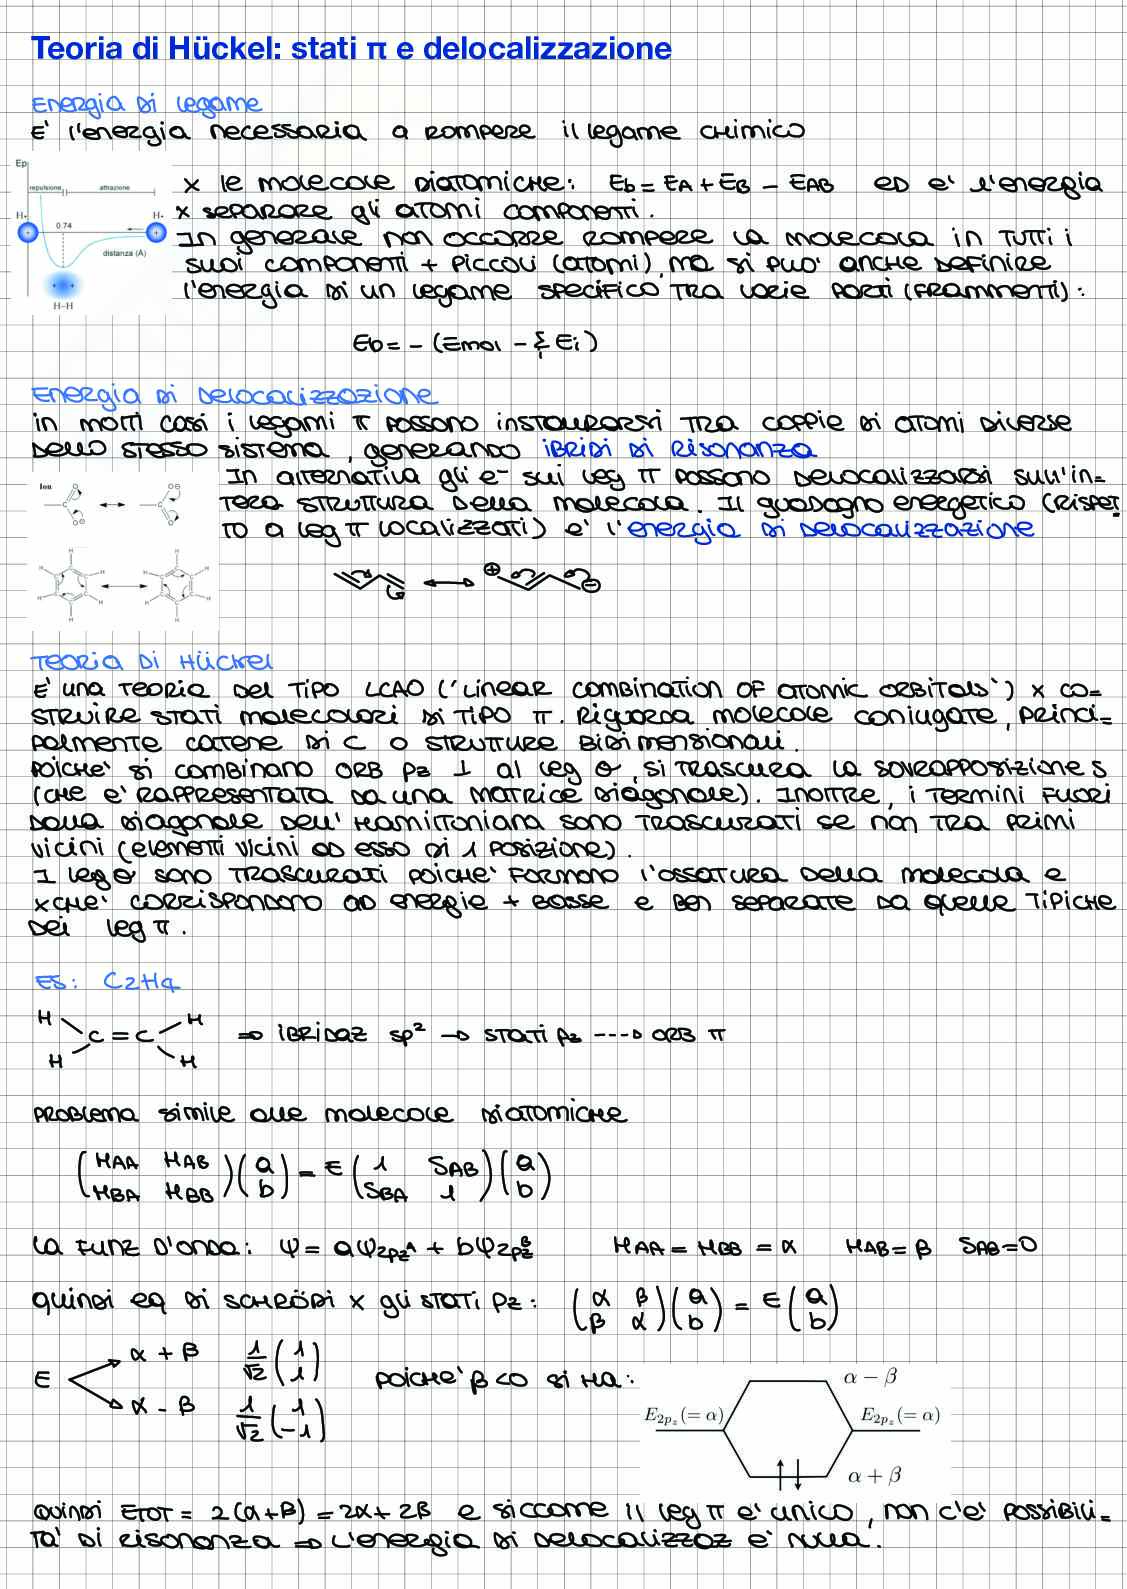 Teoria di Hückel: stati π e delocalizzazione
Energia di legame
E' l'energia necessaria a rompere il legame chimico
Ep
repulsione
attrazione
H•
H•
0.74
distanza (Å)
H–H
x le molecole diatomiche: Eb = EA + EB − EAB ed e' l'energia
x separare gli atomi componenti.
In generale non occorre rompere la molecola in tutti i
suoi componenti + piccoli (atomi), ma si puo' anche definire
l'energia di un legame specifico tra varie parti (frammenti):
Eb = − (Emol − Σi Ei)
Energia di delocalizzazione
in molti casi i legami π possono instaurarsi tra coppie di atomi diverse
dello stesso sistema, generando ibridi di risonanza
Ion
In alternativa gli e⁻ sui leg π possono delocalizzarsi sull'in=
tera struttura della molecola. Il guadagno energetico (rispet
to a leg π localizzati) e' l'energia di delocalizzazione
Teoria di Hückel
E' una teoria del tipo LCAO ('linear combination of atomic orbitals') x co=
struire stati molecolari di tipo π. Riguarda molecole coniugate, princi=
palmente catene di C o strutture bidimensionali.
Poiche' si combinano orb pz ⊥ al leg σ, si trascura la sovrapposizione S
(che e' rappresentata da una matrice diagonale). Inoltre, i termini fuori
dalla diagonale dell'Hamiltoniana sono trascurati se non tra primi
vicini (elementi vicini ad esso di 1 posizione).
I leg σ sono trascurati poiche' formano l'ossatura della molecola e
xche' corrispondono ad energie + basse e ben separate da quelle tipiche
dei leg π.
Es: C2H4
H H
C = C ⇒ ibridaz sp² → stati pz ---→ orb π
H H
Problema simile alle molecole diatomiche
(HAA HAB) (a) = E (1 SAB) (a)
(HBA HBB) (b) (SBA 1) (b)
La funz d'onda: ψ = aψ2pzA + bψ2pzB HAA = HBB = α HAB = β SAB = 0
quindi eq di Schrödi x gli stati pz: (α β) (a) = E (a)
(β α) (b) (b)
α + β 1/√2 (1 1)
E poiche' β<0 si ha:
α − β 1/√2 (1 −1)
α − β
E2pz(= α) E2pz(= α)
α + β
Quindi ETOT = 2(α+β) = 2α + 2β e siccome il leg π e' unico, non c'e' possibili=
ta' di risonanza ⇒ l'energia di delocalizzaz e' nulla.